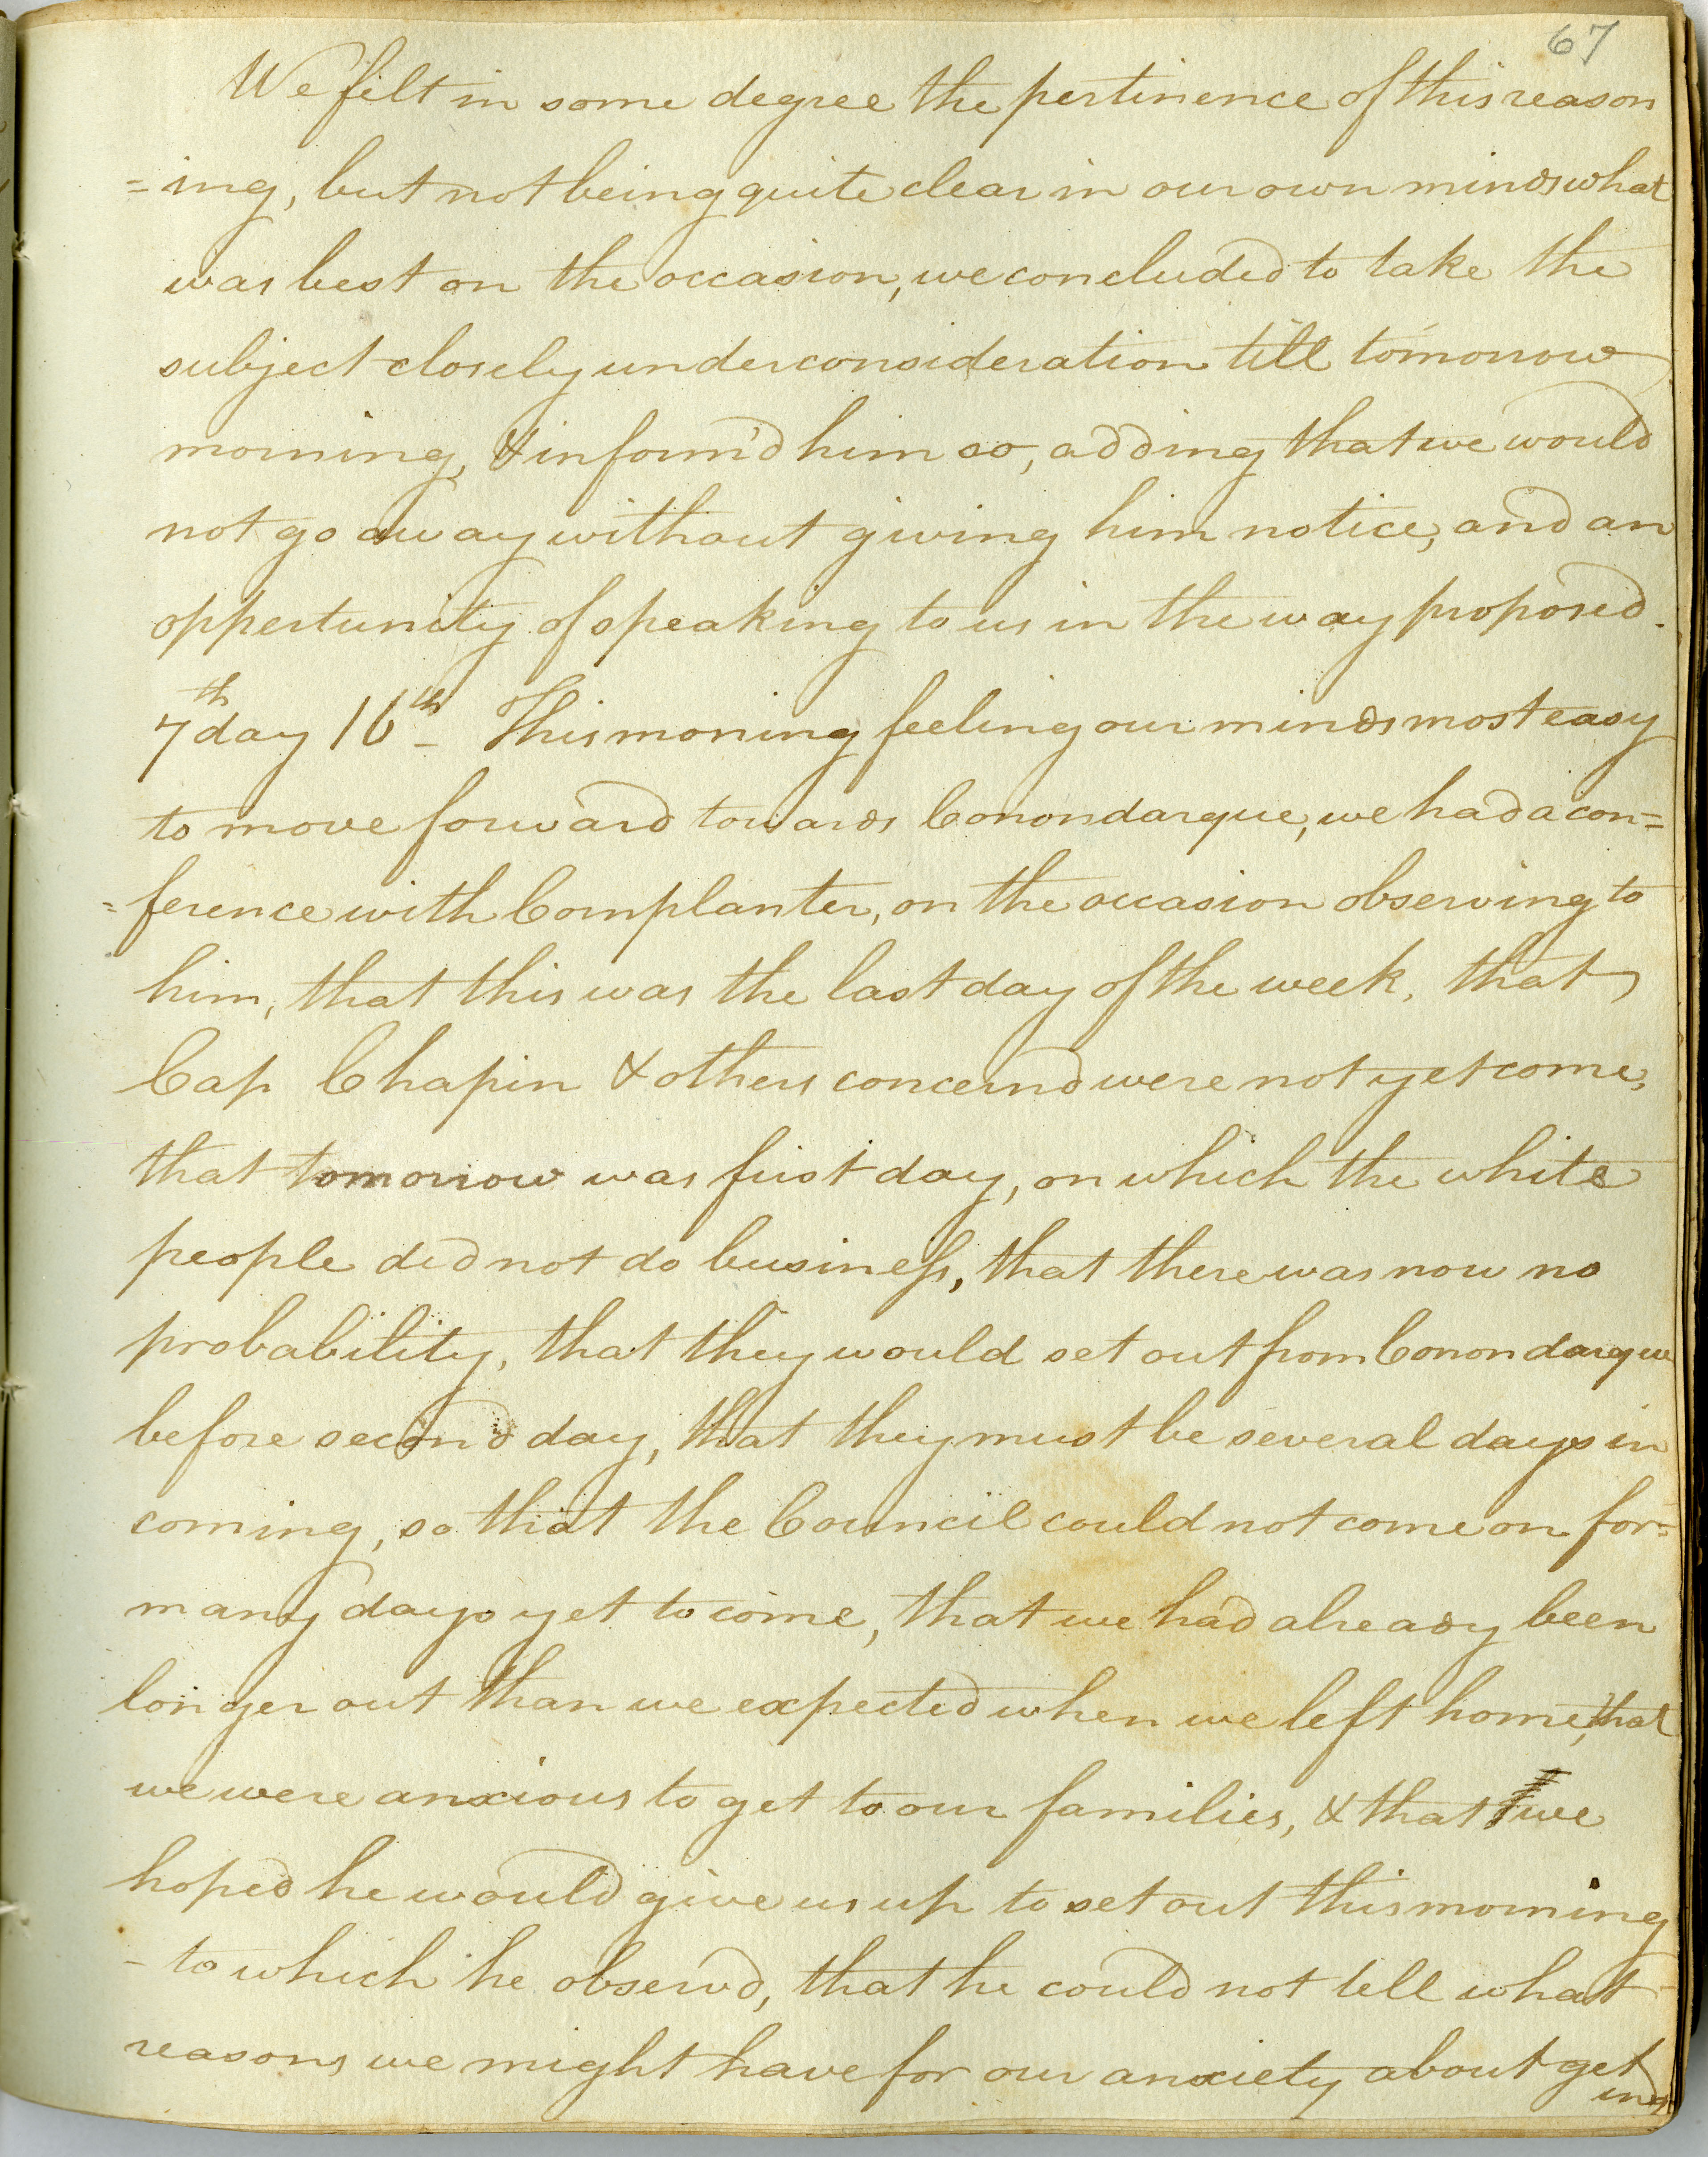 67
We felt in some degree the pertinence of this reason
=ing, but not being quite clear in our own minds what
was best on the occasion, we concluded to take the
subject closely under consideration till tomorrow
morning, & inform'd him so, adding that we would
not go away without giving him notice, and an
oppertunity of speaking to us in the way proposed.
7th day 16th - This moning feeling our minds most easy
to move forward towards Conondarque, we had a con=
=ference with Cornplanter, on the occasion observing to
him, that this was the last day of the week, that
Cap Chapin & others concernd were not yet come,
that tomorrow was first day, on which the white
people did not do business, that there was now no
probability, that they would set out from Conondarque
before second day, that they must be several days in
coming, so that the Council could not come on for=
many days yet to come, that we had already been
longer out than we expected when we left home, that
we were anxious to get to our families, & that we
hoped he would give us up to set out this morning
- to which he observd, that he could not tell what
reasons we might have for our anxiety about get
ing